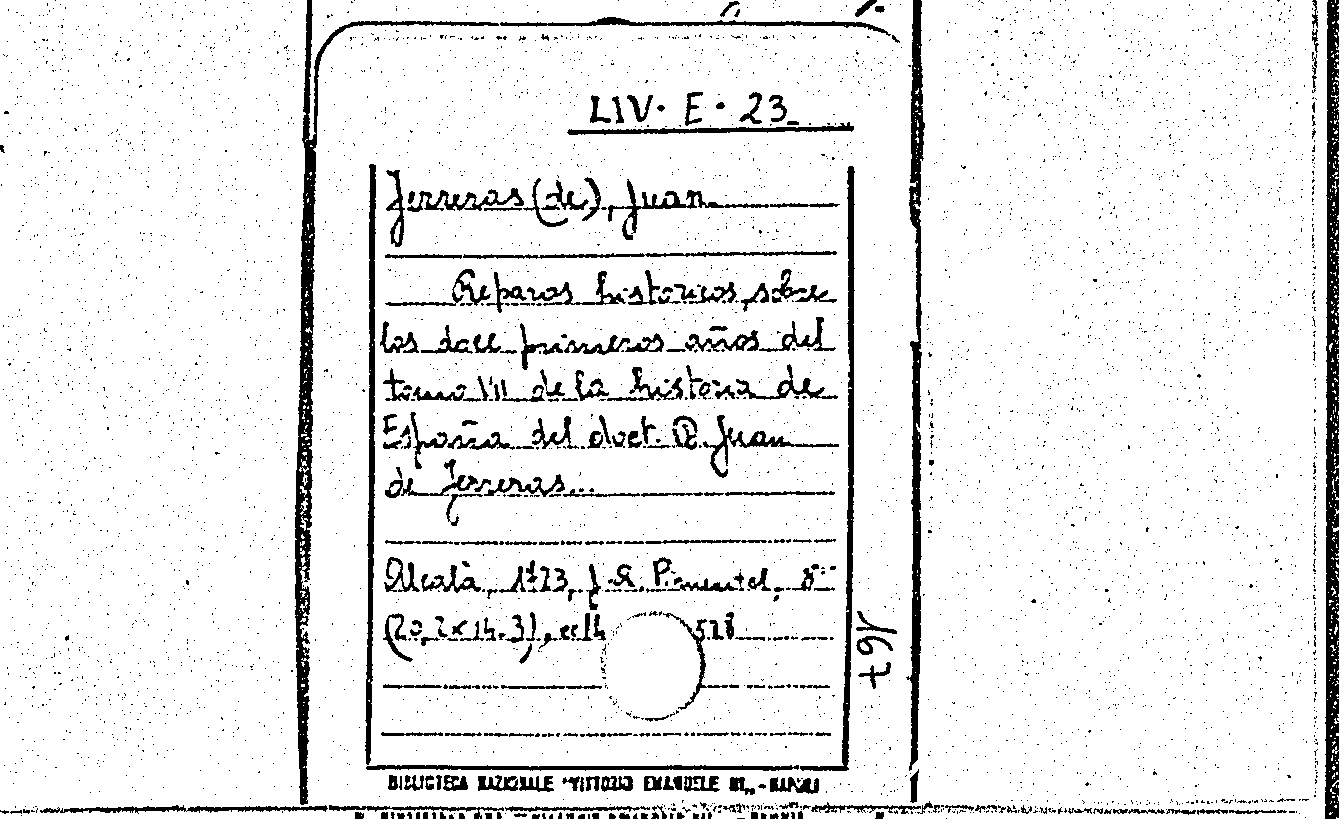 LIV. E. 23
Ferreras (de), Juan
Reparos historicos, sobre
los doce primeros años del
tomo VII de la historia de
España del doct. D. Juan
de Ferreras...
Alcalà, 1723, J. R. Pimentel, 8°
(20,2x14.3), cc/4 518
167
BIBLIOTECA NAZIONALE "VITTORIO EMANUELE III" - NAPOLI